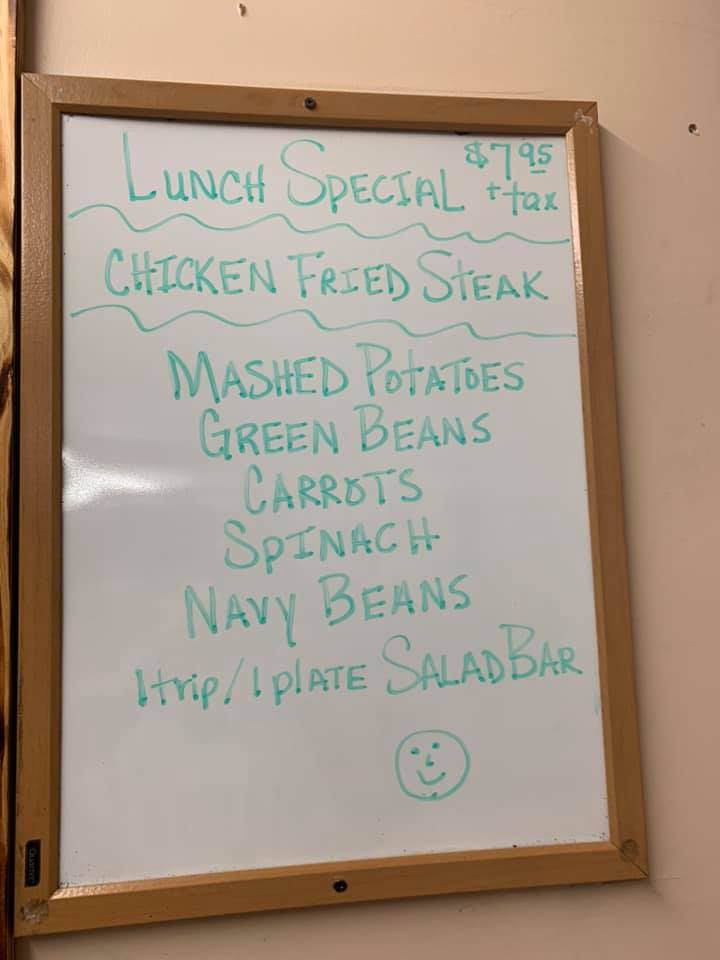 LUNCH SPECIAL $7.95
+ tax
CHICKEN FRIED STEAK
MASHED POTATOES
GREEN BEANS
CARROTS
SPINACH
NAVY BEANS
1 trip/1 plATE SALAD BAR
Quartet